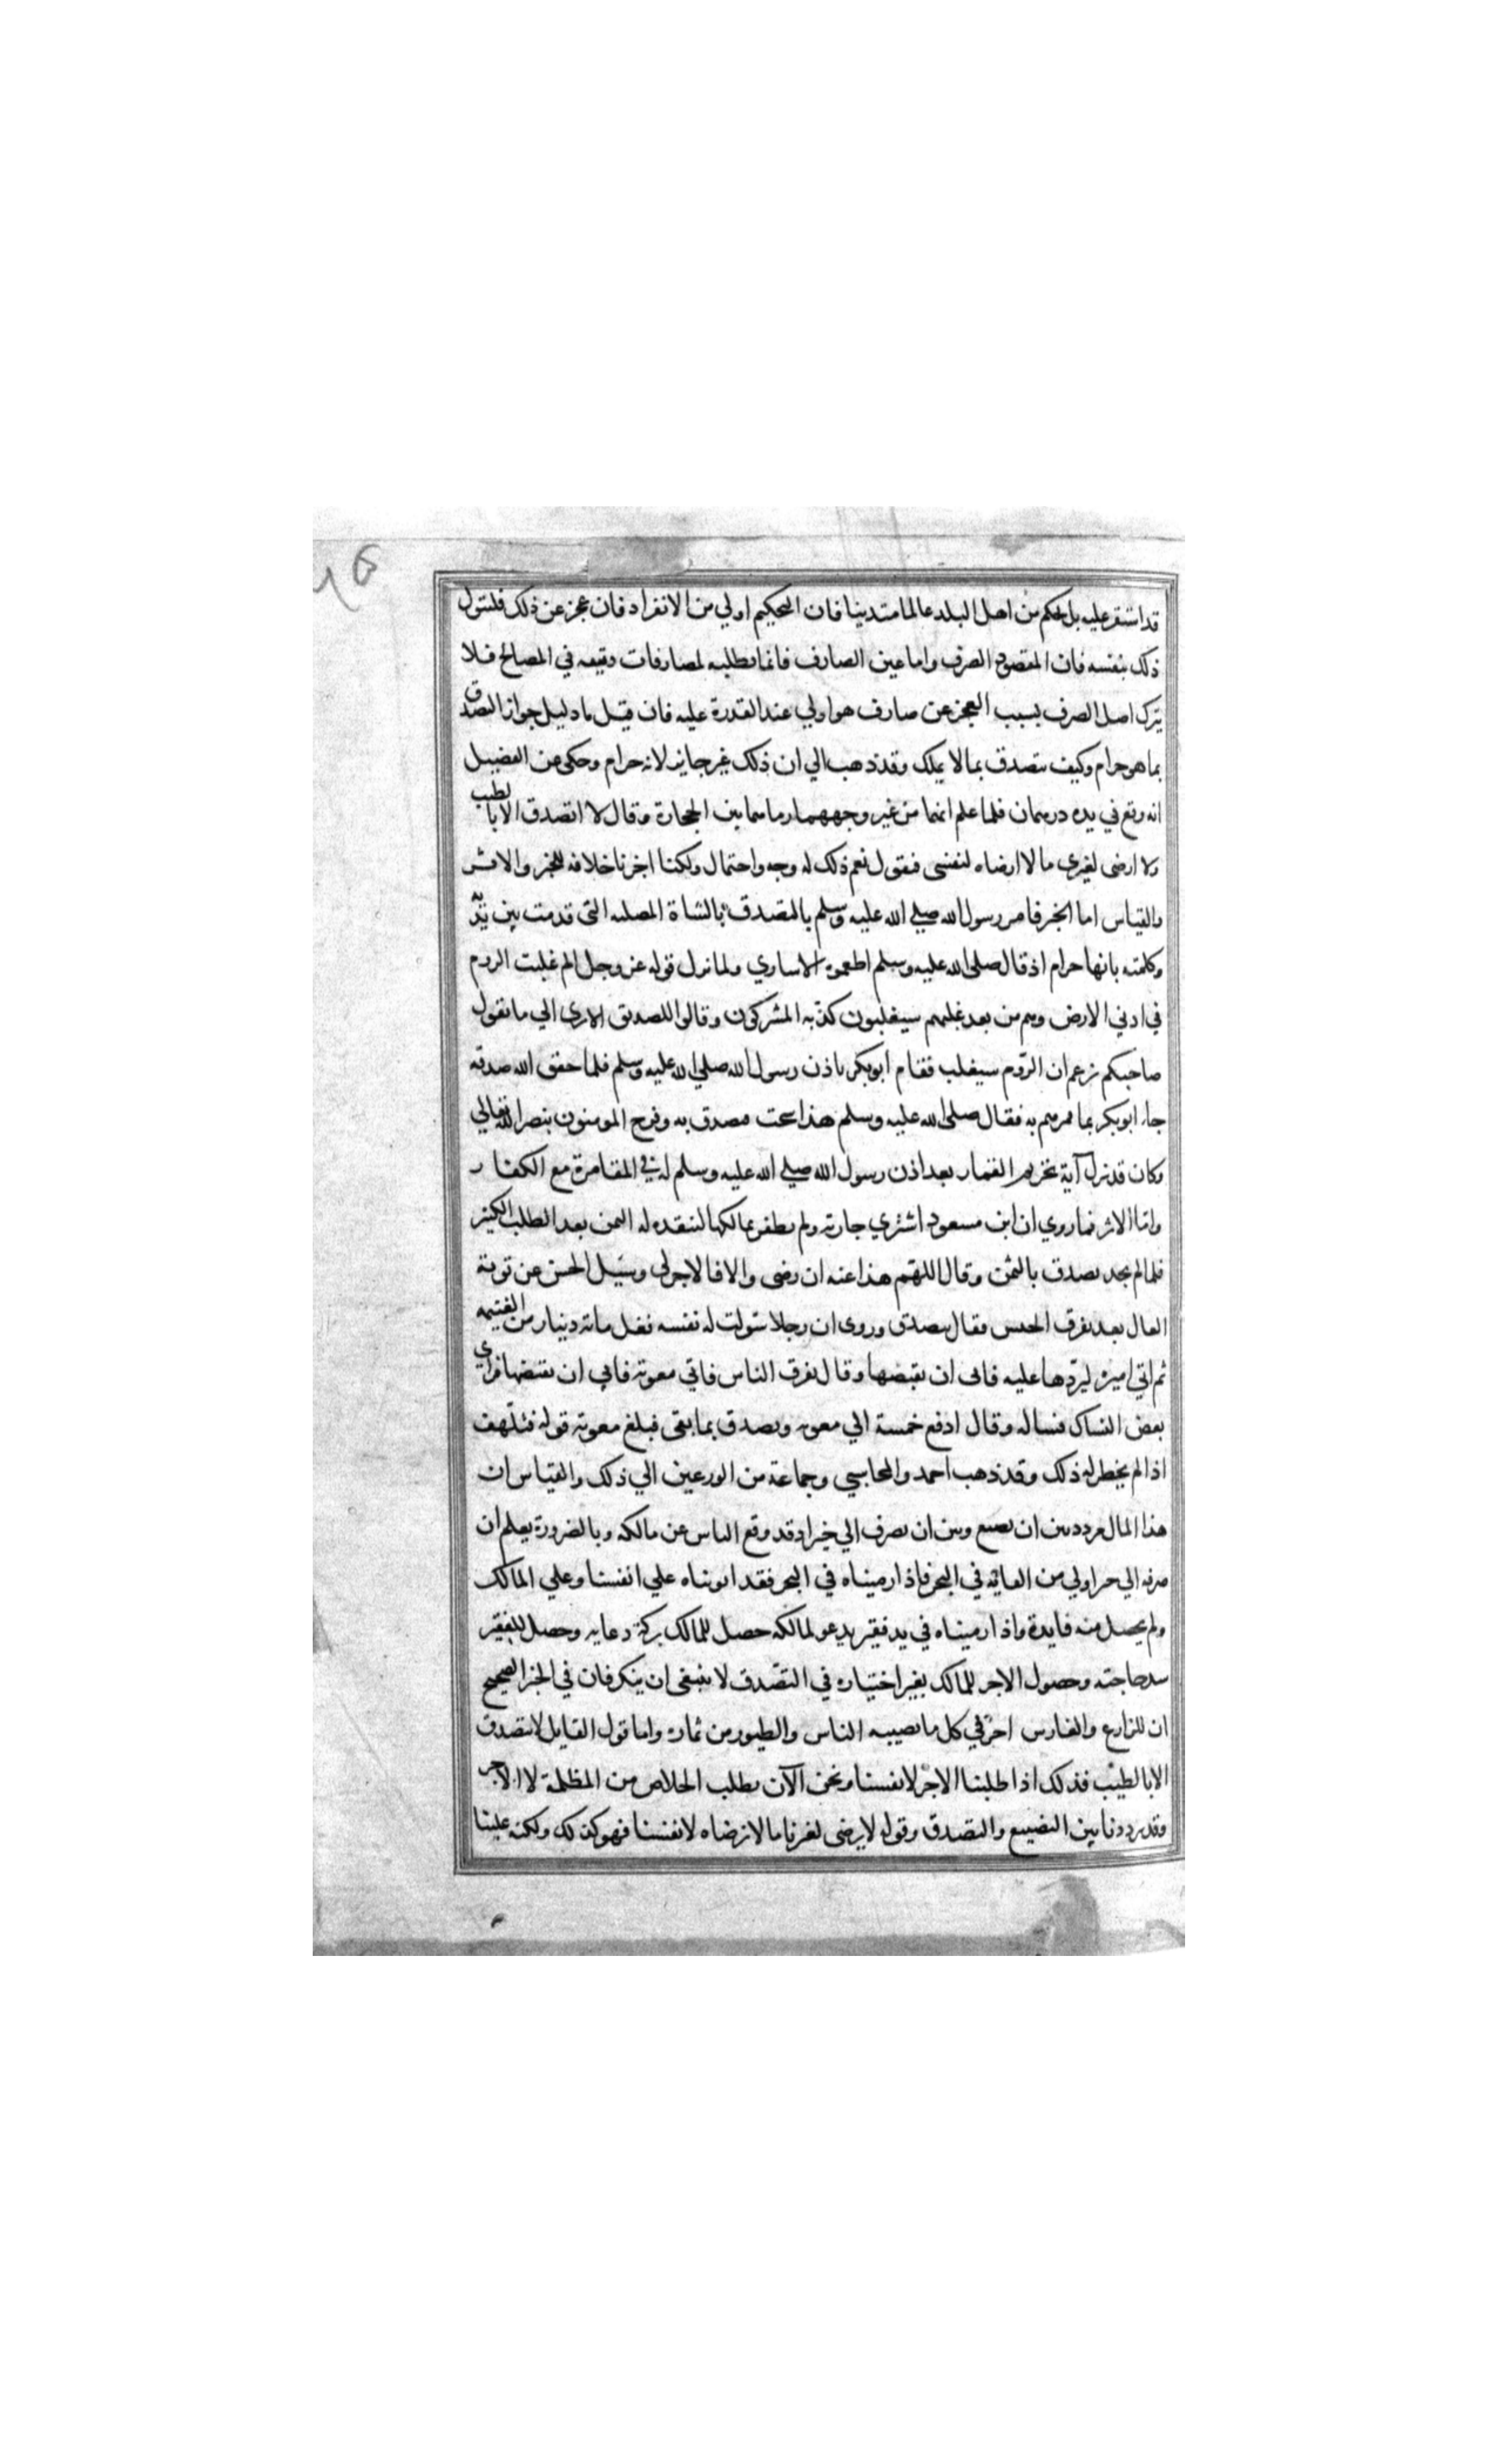 قد استقر عليه بل يحكم من اهل البلد عالما متدينا فان التحكيم اولي من الانفراد فان عجز عن ذلك فليتول
ذلك بنفسه فان المقصود الصرف واما عين الصارف فانما نطلبه لمصارفات دقيقه في المصالح فلا
يترك اصل الصرف بسبب العجز عن صارف هو اولي عند القدرة عليه فان قيل ما دليل جواز التصدق
بما هو حرام وكيف يتصدق بما لا يملك وقد ذهب الي ان ذلك غير جايز لانه حرام وحكي عن الفضيل
انه وقع في يده درهمان فلما علم انهما من غير وجههما رماهما بين الحجارة وقال لا اتصدق الا بالطيب
ولا ارضى لغيري ما لا ارضاه لنفسى فنقول نعم ذلك له وجه واحتمال ولكنا اخترنا خلافه للخبر والاثر
والقياس اما الخبر فامر رسول الله صلي الله عليه وسلم بالتصدق بالشاة المصليه التى قدمت بين يديه
وكلمته بانها حرام اذ قال صلى الله عليه وسلم اطعموه الاساري ولما نزل قوله عز وجل الم غلبت الروم
في ادني الارض وهم من بعد غلبهم سيغلبون كذبه المشركون وقالوا للصديق الا تري الي ما يقول
صاحبكم يزعم ان الروم سيغلب فقام ابوبكر باذن رسول الله صلي الله عليه وسلم فلما حقق الله صدقه
جاء ابوبكر بما قمرهم به فقال صلى الله عليه وسلم هذا سحت فصدق به وفرح المومنون بنصر الله تعالي
وكان قد نزل آية تحريم القمار بعد اذن رسول الله صلي الله عليه وسلم له في المقامرة مع الكفار
واما الاثر فما روي ان ابن مسعود اشتري جارية ولم يظفر بمالكها لينقده له الثمن بعد الطلب الكثير
فلما لم يجد تصدق بالثمن وقال اللهم هذا عنه ان رضى والا فالاجر لى وسيل الحسن عن توبة
الغال بعد تفرق الجيس فقال يتصدق وروى ان رجلا سولت له نفسه فغل مائة دينار من الغنيمه
ثم اتي اميره ليردها عليه فابى ان يقبضها وقال تفرق الناس فاتي معوية فابي ان يقبضها فراي
بعض النساك فساله وقال ادفع خمسة الي معويه وتصدق بما بقى فبلغ معوية قوله فتلهف
اذا لم يخطر له ذلك وقد ذهب احمد والمحاسبي وجماعة من الورعين الي ذلك والقياس ان
هذا المال مردد بين ان يضيع وبين ان يصرف الي خير اذ قد وقع الياس عن مالكه وبالضرورة يعلم ان
صرفه الي خير اولي من القائه في البحر فاذا رميناه في البحر فقد فوتناه علي انفسنا وعلي المالك
ولم يحصل منه فايدة واذا رميناه في يد فقير يدعو لمالكه حصل للمالك بركة دعايه وحصل للفقير
سد حاجته وحصول الاجر للمالك بغير اختياره في التصدق لا ينبغى ان ينكر فان في الخبر الصحيح
ان للزارع والغارس اجرا في كل ما يصيبه الناس والطيور من ثماره واما قول القايل لا يتصدق
الا بالطيب فذلك اذا طلبنا الاجر لانفسنا ونحن الآن نطلب الخلاص من المظلمة لا الاجر
وقد ترددنا بين التضييع والتصدق وقوله لا يرضى لغيرنا ما لا نرضاه لانفسنا فهو كذلك ولكنه علينا